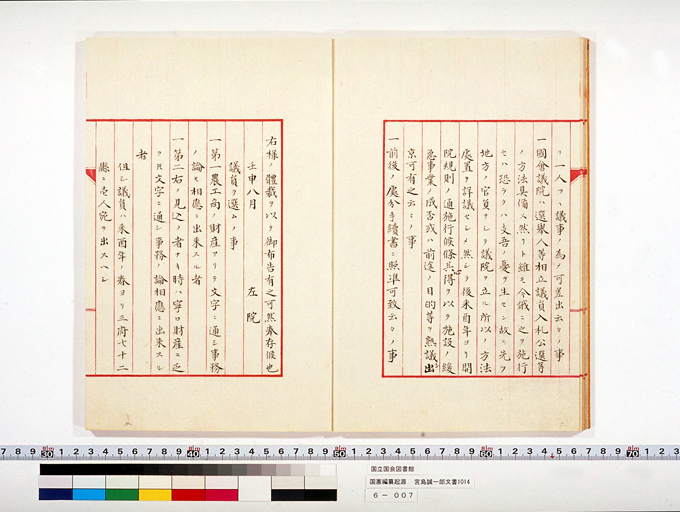 リ一人ヲハ議事ノ為ノ可差出云々ノ事
一國會議院ハ選挙人等相立議員入札公選等
ノ方法具備ス然リト雖モ今俄ニ之ヲ施行
セハ恐ラクハ支吾ノ憂ヲ生セン故ニ先ツ
地方ノ官員ヲシテ議院ヲ立ル所以ノ方法
處置ヲ詳議セシメ然シテ後来酉年ヨリ開
院規則ノ通施行候條其得ヲ以テ施設ノ緩
急事業ノ成否或ハ前途ノ目的等ヲ熟議出
京可有之云々ノ事
一前後ノ處分手續書ニ照準可致云々ノ事
右様ノ體裁ヲ以テ御布告有之可然奉存候也
壬申八月 左院
議員ヲ選ムノ事
一第一農工商ノ財産アリテ文字ニ通シ事務
ノ論モ相應ニ出来スル者
一第二右ノ見込ノ者ナキ時ハ寧ロ財産ニ乏
ヲ文字ニ通シ事務ノ論相應ニ出来スル
者
但シ議員ハ来酉年ノ春ヨリ三府七十二
縣ニ壱人宛ヲ出スヘシ
国立国会図書館
国憲編纂起源 宮島誠一郎文書1014
6－007